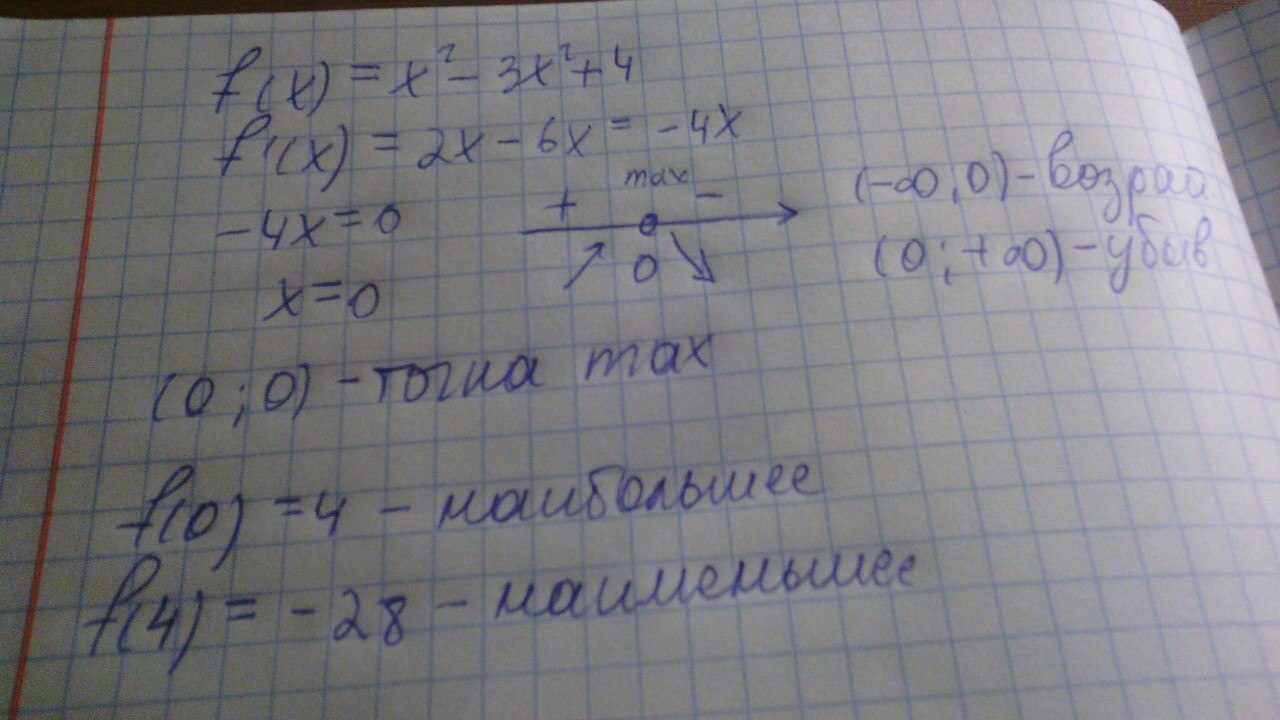 f(x) = x² - 3x² + 4
f'(x) = 2x - 6x = -4x
-4x = 0
x = 0
+ max -
0
(-∞; 0) - возраст
(0; +∞) - убыв
(0; 0) - точка max
f(0) = 4 - наибольшее
f(4) = -28 - наименьшее